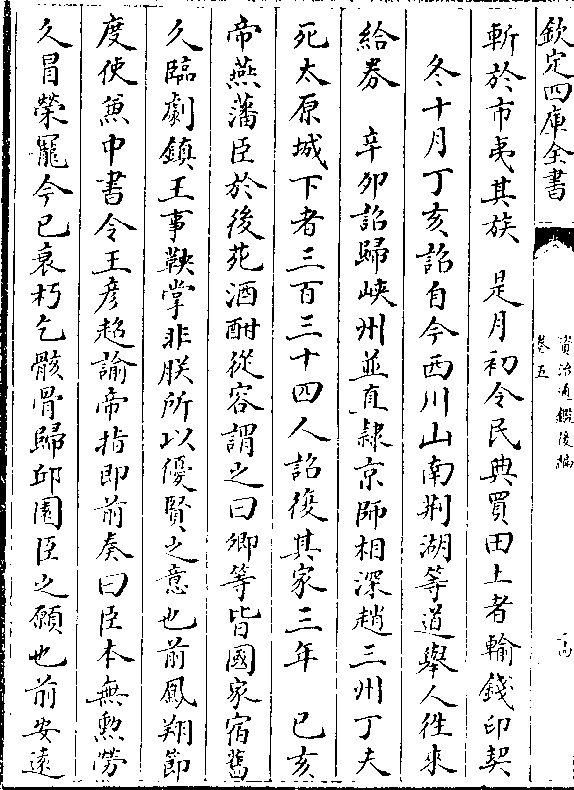 欽定四庫全書
資治通鑑後編
卷五
斬於市夷其族　是月初令民典買田土者輸錢印契
冬十月丁亥詔自今西川山南荆湖等道舉人徃來
給券　辛卯詔歸峽州並直隸京師相深趙三州丁夫
死太原城下者三百三十四人詔復其家三年　已亥
帝燕藩臣於後苑酒酣從容謂之曰卿等皆國家宿舊
久臨劇鎮王事鞅掌非朕所以優賢之意也前鳳翔節
度使兼中書令王彥超諭帝指即前奏曰臣本無勲勞
久冒榮寵今已衰朽乞骸骨歸邱園臣之願也前安遠